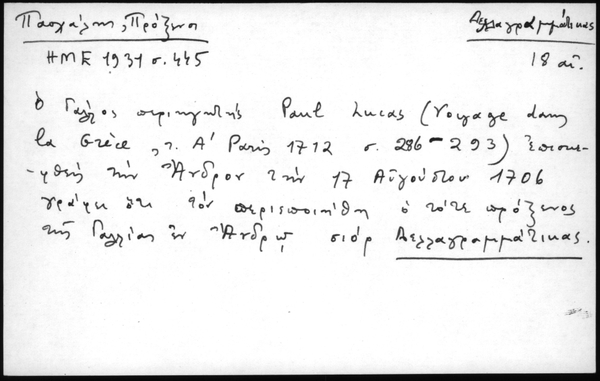 Πασχάλης, Πρόξενοι
Δελλαγραμμάτικας
ΗΜΕ 1931 σ. 445
18 αἰ.
ὁ Γάλλος περιηγητής Paul Lucas (Voyage dans
la Grèce, τ. Α' Paris 1712 σ. 286-293) ἐπισκε-
-φθείς τήν Ἄνδρον τήν 17 Αὐγούστου 1706
γράφει ὅτι τόν περιεποιήθη ὁ τότε πρόξενος
τῆς Γαλλίας ἐν Ἄνδρῳ σιόρ Δελλαγραμμάτικας.